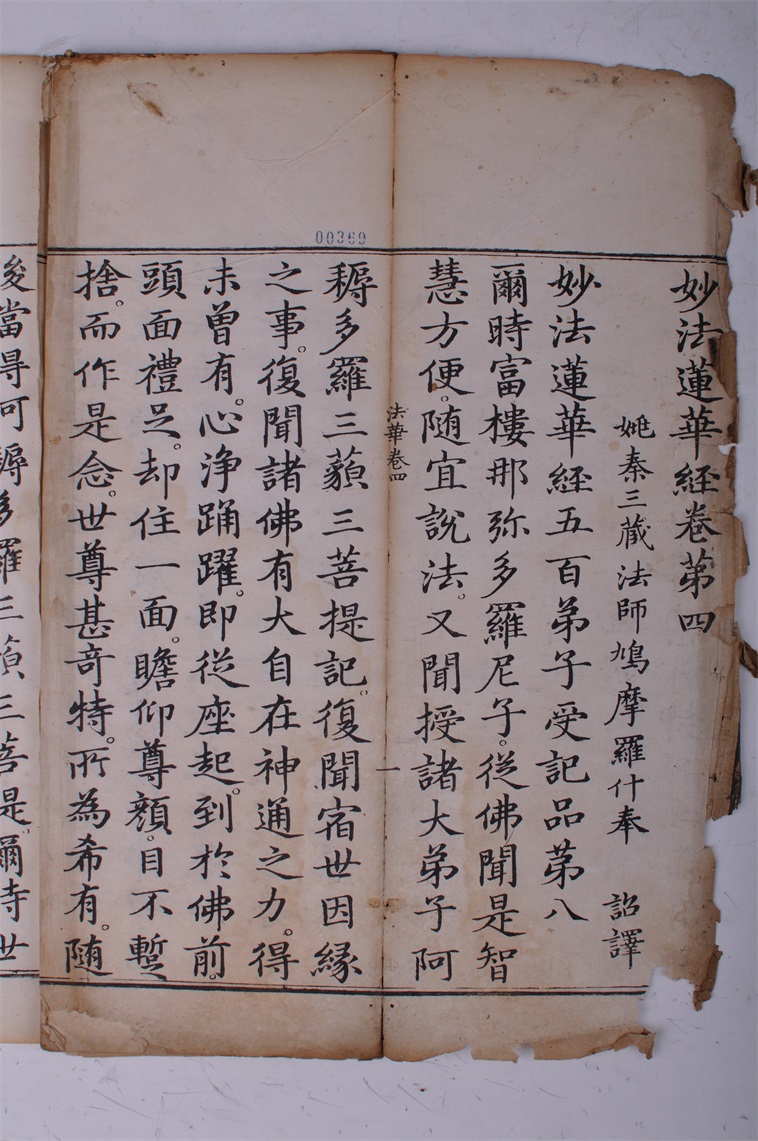 00369
妙法蓮華經卷第四
姚秦三藏法師鳩摩羅什奉 詔譯
妙法蓮華經五百弟子受記品第八
爾時富樓那弥多羅尼子。從佛聞是智
慧方便。随宜說法。又聞授諸大弟子阿
法華卷四
一
耨多羅三藐三菩提記。復聞宿世因縁
之事。復聞諸佛有大自在神通之力。得
未曾有。心浄踊躍。即從座起。到於佛前。
頭面禮足。却住一面。瞻仰尊顏。目不暫
捨。而作是念。世尊甚奇特。所為希有。随
後當得阿耨多羅三藐三菩提。爾時世